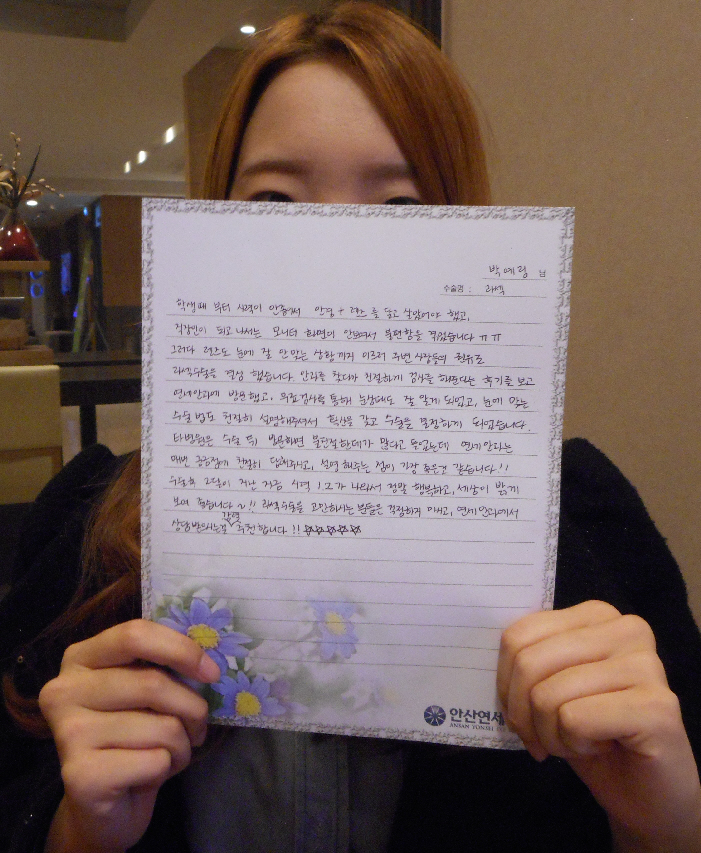 박예령 님
수술명 : 라섹
학생때 부터 시력이 안좋아서 안경 + 렌즈를 끼고 살았어야 했고,
직장인이 되고 나서는 모니터 화면이 안보여서 불편함을 겪었습니다 ㅠㅠ
그러다 렌즈도 눈에 잘 안맞는 상황까지 이르러 주변 사람들의 권유로
라섹수술을 결심 했습니다 안과를 찾다가 친절하게 검사를 해준다는 후기를 보고
연세안과에 방문했고, 무료검사를 통해 눈상태도 잘 알게 되었고, 눈에 맞는
수술법도 친절히 설명해주셔서 확신을 갖고 수술을 결정하게 되었습니다.
타병원은 수술 뒤 방문하면 불친절한데가 많다고 들었는데 연세안과는
매번 궁금점에 친절히 답해주시고, 설명 해주는 점이 가장 좋은것 같습니다!!
수술후 2달이 지난 지금 시력 1.2가 나와서 정말 행복하고, 세상이 밝게
보여 좋습니다~!! 라섹수술을 고민하시는 분들은 걱정하지 마시고, 연세안과에서
상담받으시는걸 강력 추천합니다!! ☆☆☆☆☆
안산연세
ANSAN YONSEI